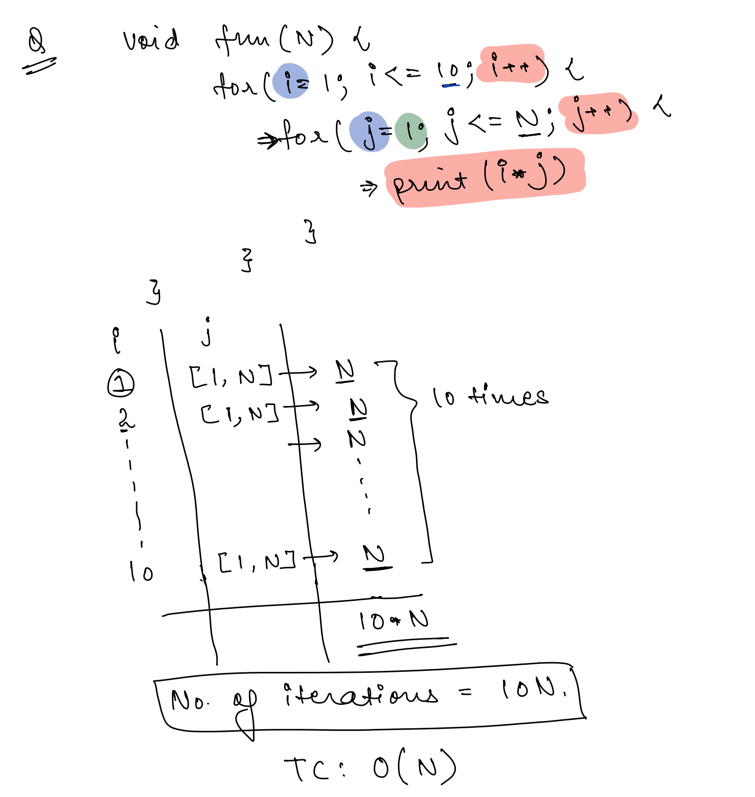 Q void fun(N) {
for( i= 1; i<= 10; i++) {
⇒for( j= 1; j<= N; j++) {
⇒ print (i*j)
}
}
}
i j
1 [1, N] → N
2 [1, N] → N
→ N
10 times
10 [1, N] → N
10*N
No. of iterations = 10N.
TC: O(N)